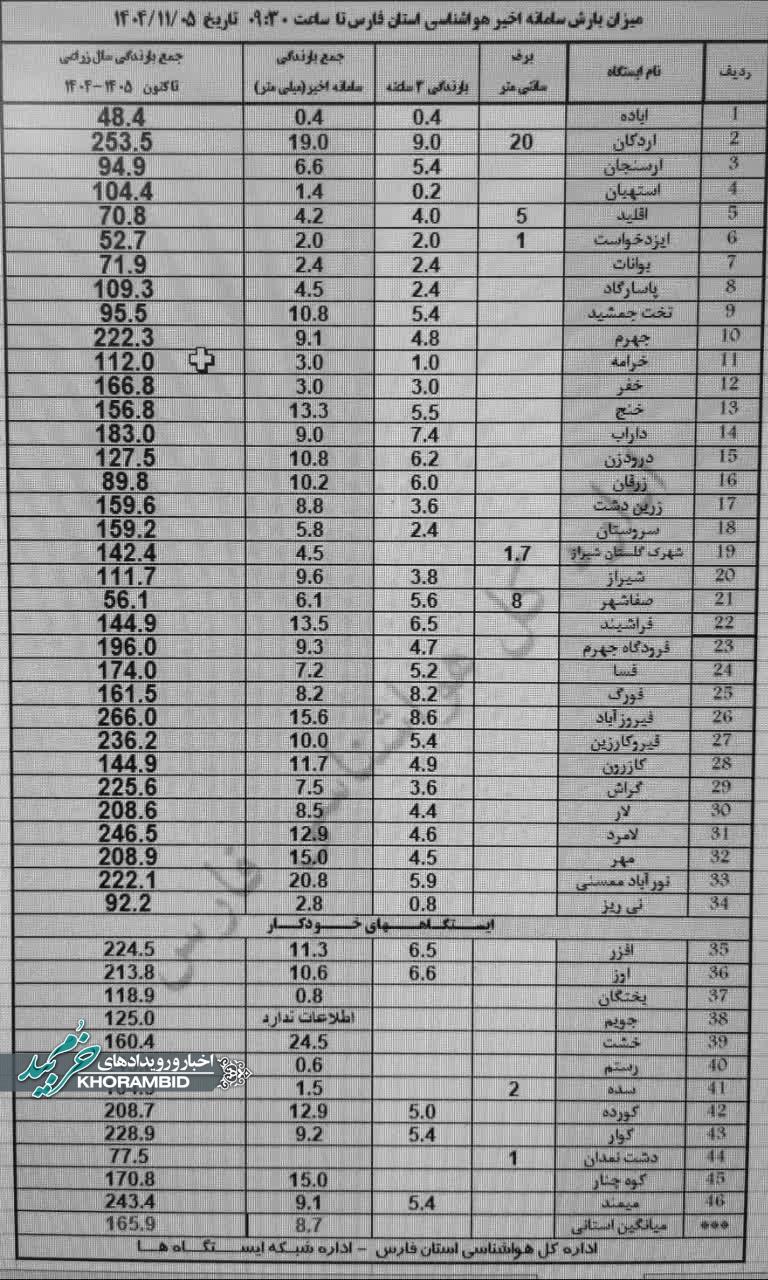 میزان بارش سامانه اخیر هواشناسی استان فارس تا ساعت ۰۹:۳۰ تاریخ ۱۴۰۴/۱۱/۰۵
ردیف نام ایستگاه برف سانتی متر بارندگی ۳ ساعته جمع بارندگی سامانه اخیر(میلی متر) جمع بارندگی سال زراعی تاکنون ۱۴۰۵-۱۴۰۴
1 اباده 0.4 0.4 48.4
2 اردکان 20 9.0 19.0 253.5
3 ارسنجان 5.4 6.6 94.9
4 استهبان 0.2 1.4 104.4
5 اقلید 5 4.0 4.2 70.8
6 ایزدخواست 1 2.0 2.0 52.7
7 بوانات 2.4 2.4 71.9
8 پاسارگاد 2.4 4.5 109.3
9 تخت جمشید 5.4 10.8 95.5
10 جهرم 4.8 9.1 222.3
11 خرامه 1.0 3.0 112.0
12 خفر 3.0 3.0 166.8
13 خنج 5.5 13.3 156.8
14 داراب 7.4 9.0 183.0
15 درودزن 6.2 10.8 127.5
16 زرقان 6.0 10.2 89.8
17 زرین دشت 3.6 8.8 159.6
18 سروستان 2.4 5.8 159.2
19 شهرک گلستان شیراز 1.7 4.5 142.4
20 شیراز 3.8 9.6 111.7
21 صفاشهر 8 5.6 6.1 56.1
22 فراشبند 6.5 13.5 144.9
23 فرودگاه جهرم 4.7 9.3 196.0
24 فسا 5.2 7.2 174.0
25 فورگ 8.2 8.2 161.5
26 فیروزآباد 8.6 15.6 266.0
27 قیروکارزین 5.4 10.0 236.2
28 کازرون 4.9 11.7 144.9
29 گراش 3.6 7.5 225.6
30 لار 4.4 8.5 208.6
31 لامرد 4.6 12.9 246.5
32 مهر 4.5 15.0 208.9
33 نورآباد ممسنی 5.9 20.8 222.1
34 نی ریز 0.8 2.8 92.2
ایستگاههای خودکار
35 افزر 6.5 11.3 224.5
36 اوز 6.6 10.6 213.8
37 بختگان 0.8 118.9
38 جویم اطلاعات ندارد 125.0
39 خشت 24.5 160.4
40 رستم 0.6
41 سده 2 1.5
42 کورده 5.0 12.9 208.7
43 کوار 5.4 9.2 228.9
44 دشت نمدان 1 77.5
45 کوه چنار 15.0 170.8
46 میمند 5.4 9.1 243.4
*** میانگین استانی 8.7 165.9
اداره کل هواشناسی استان فارس - اداره شبکه ایستگاه ها
اداره کل هواشناسی فارس
اخبار و رویدادهای
خرمبید
KHORAMBID